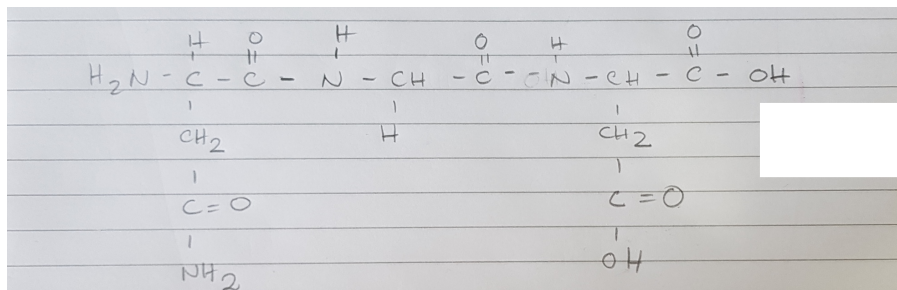 H O H O H O
H₂N - C - C - N - CH - C - N - CH - C - OH
CH₂ H CH₂
C=O C=O
NH₂ OH